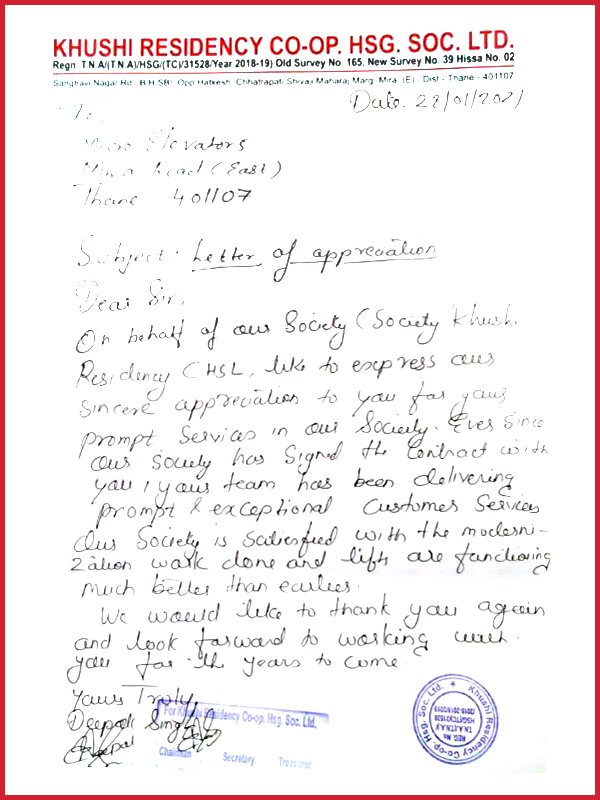 KHUSHI RESIDENCY CO-OP. HSG. SOC. LTD.
Regn T.N.A/(T.N.A)/HSG/(TC)/31528/Year 2018-19) Old Survey No. 165, New Survey No. 39 Hissa No. 02
Sanghavi Nagar Rd. B/H SBI Opp Hatkesh Chhatrapati Shivaji Maharaj Marg. Mira (E) Dist - Thane - 401107
Date. 22/01/2021
To,
Elevators
Mira Road (East)
Thane 401107
Subject : Letter of appreciation
Dear Sir,
On behalf of our Society (Society Khushi
Residency CHSL, like to express our
sincere appreciation to you for your
prompt services in our Society. Ever since
our society has signed the contract with
you, your team has been delivering
prompt & exceptional Customer Services
Our Society is satisfied with the moderni-
zation work done and lifts are functioning
much better than earlier.
We would like to thank you again
and look forward to working with
you for the years to come
Yours Truly,
Deepak Singh
For Khushi Residency Co-op. Hsg. Soc. Ltd.
Chairman Secretary Treasurer
Khushi Residency Co-op Hsg. Soc. Ltd.